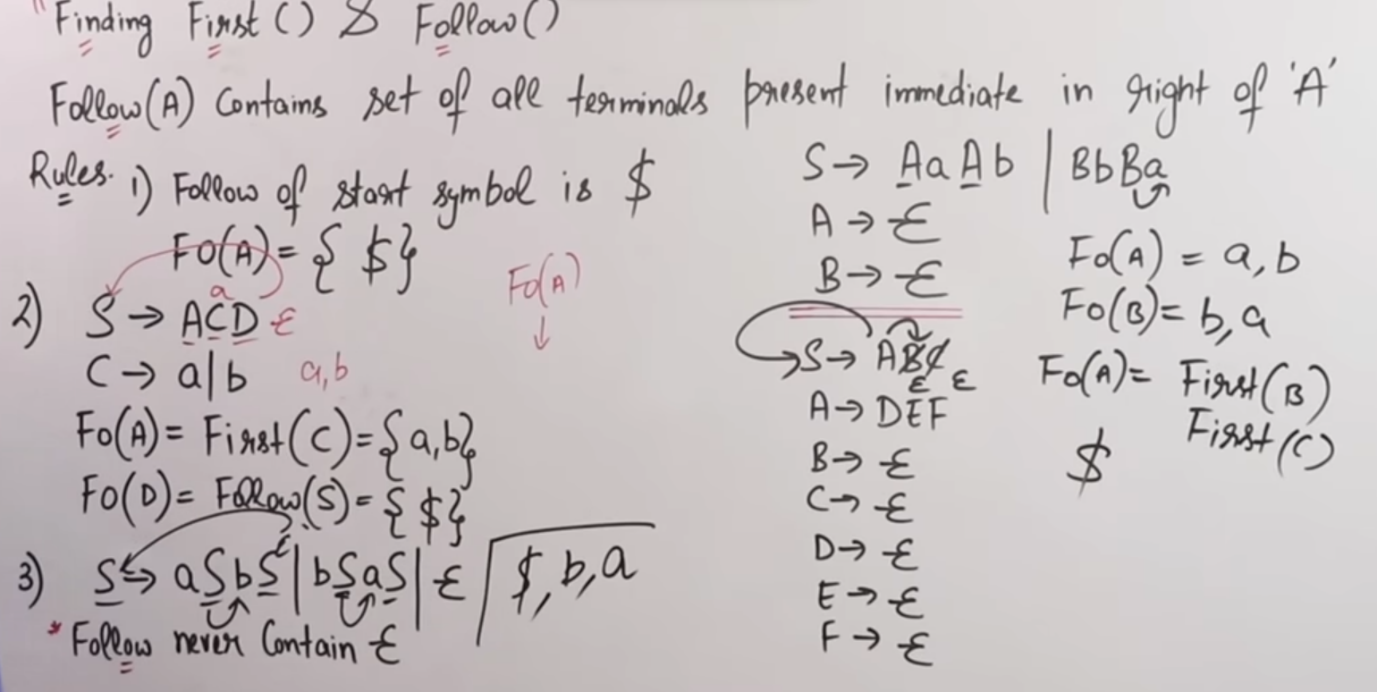 "Finding First () & Follow ()
Follow(A) Contains set of all terminals present immediate in right of 'A'
Rules. 1) Follow of start symbol is $
FO(A) = { $}
2) S → ACD ε
a
C → a|b a,b
Fo(A)
↓
Fo(A) = First(C) = {a,b}
FO(D) = Follow(S) = { $}
3) S → aSbS | bSaS | ε
$, b, a
* Follow never Contain ε
S → AaAb | BbBa
A → ε
B → ε
Fo(A) = a, b
Fo(B) = b, a
S → ABC
ε ε
A → DEF
B → ε
C → ε
D → ε
E → ε
F → ε
Fo(A) = First(B)
First(C)
$